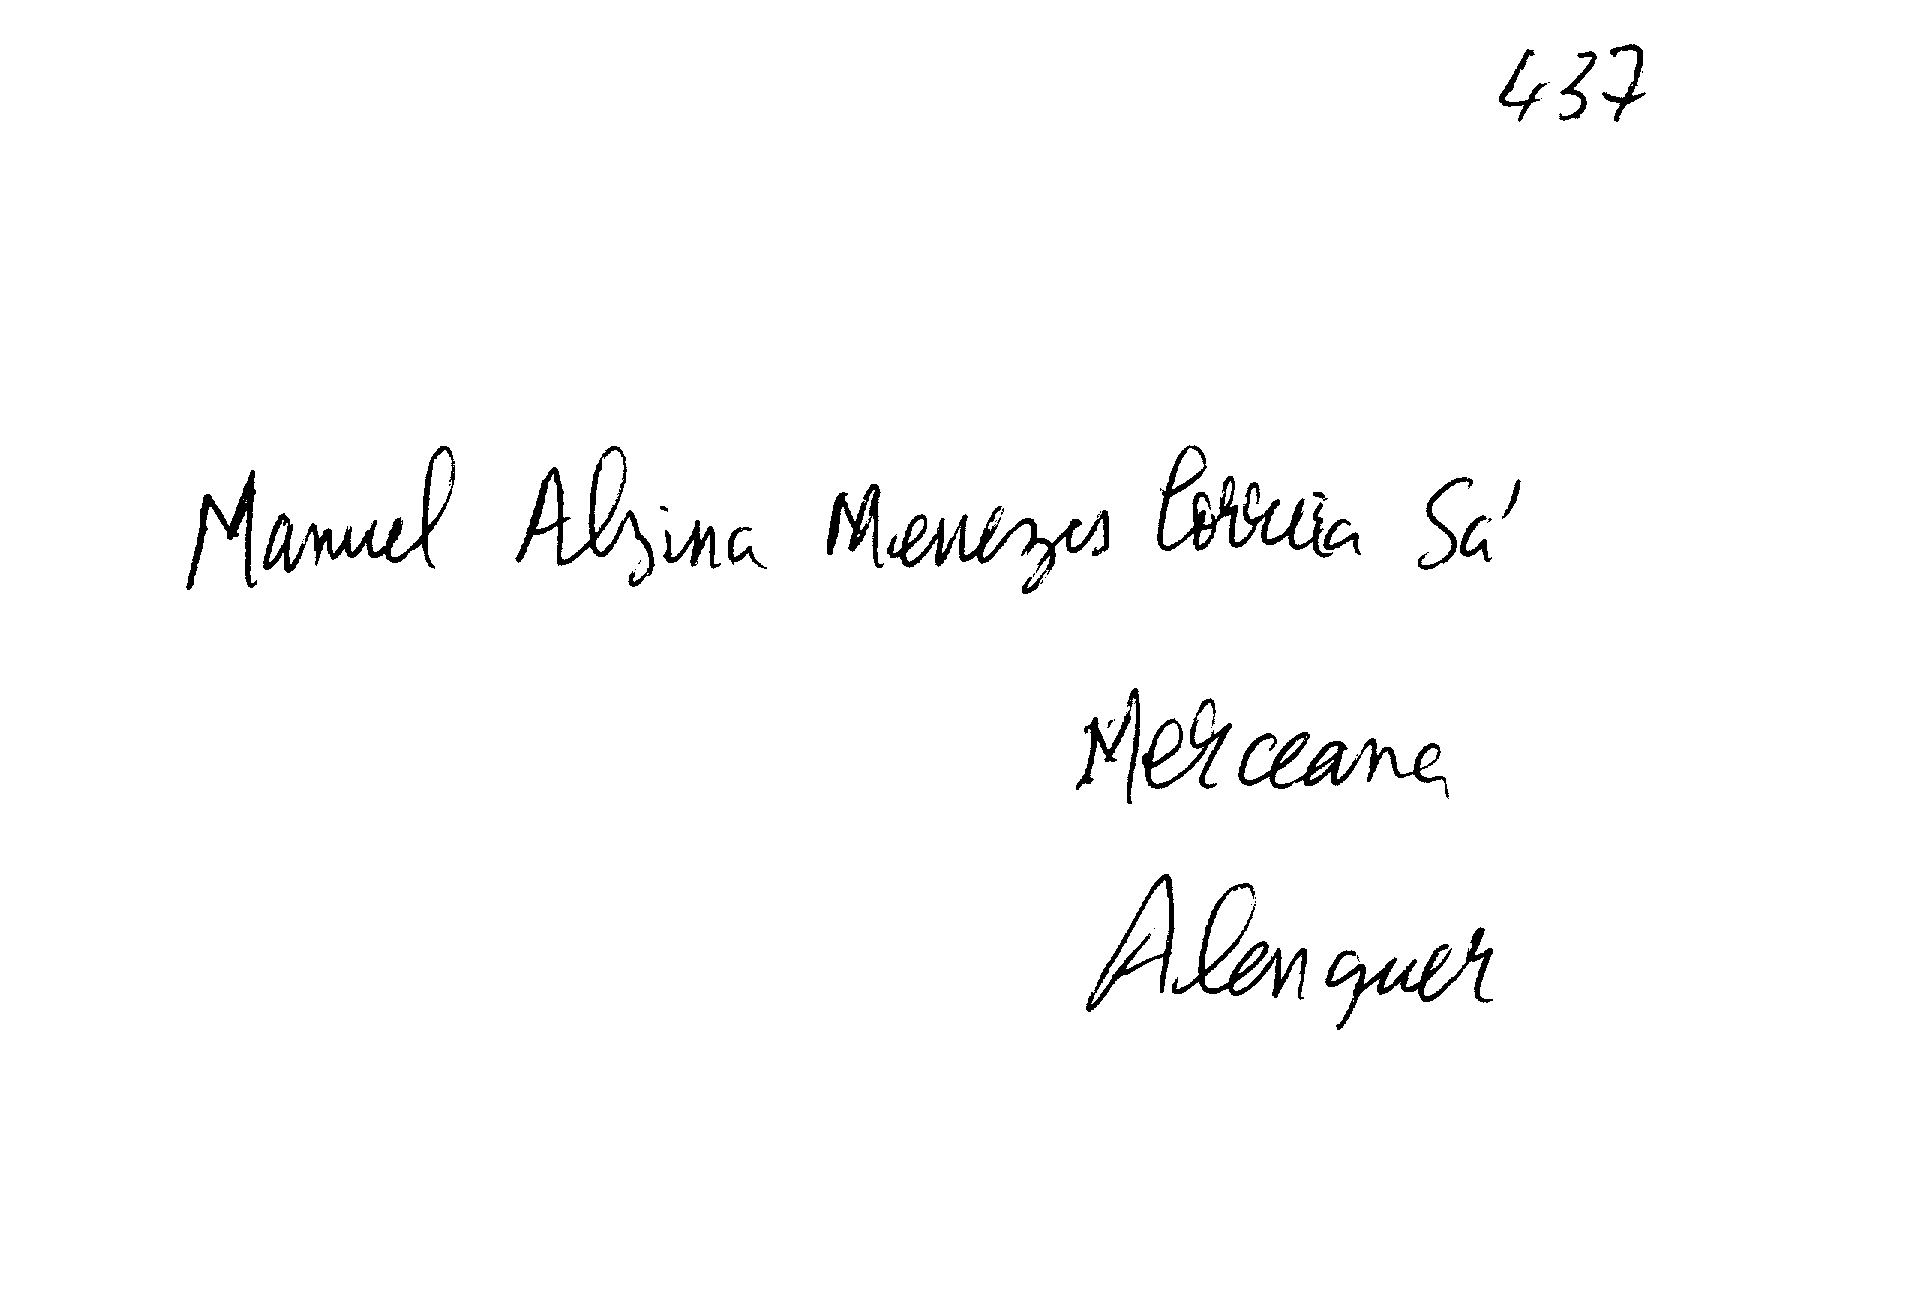 437
Manuel Alzina Menezes Correia Sá
Merceana
Alenquer